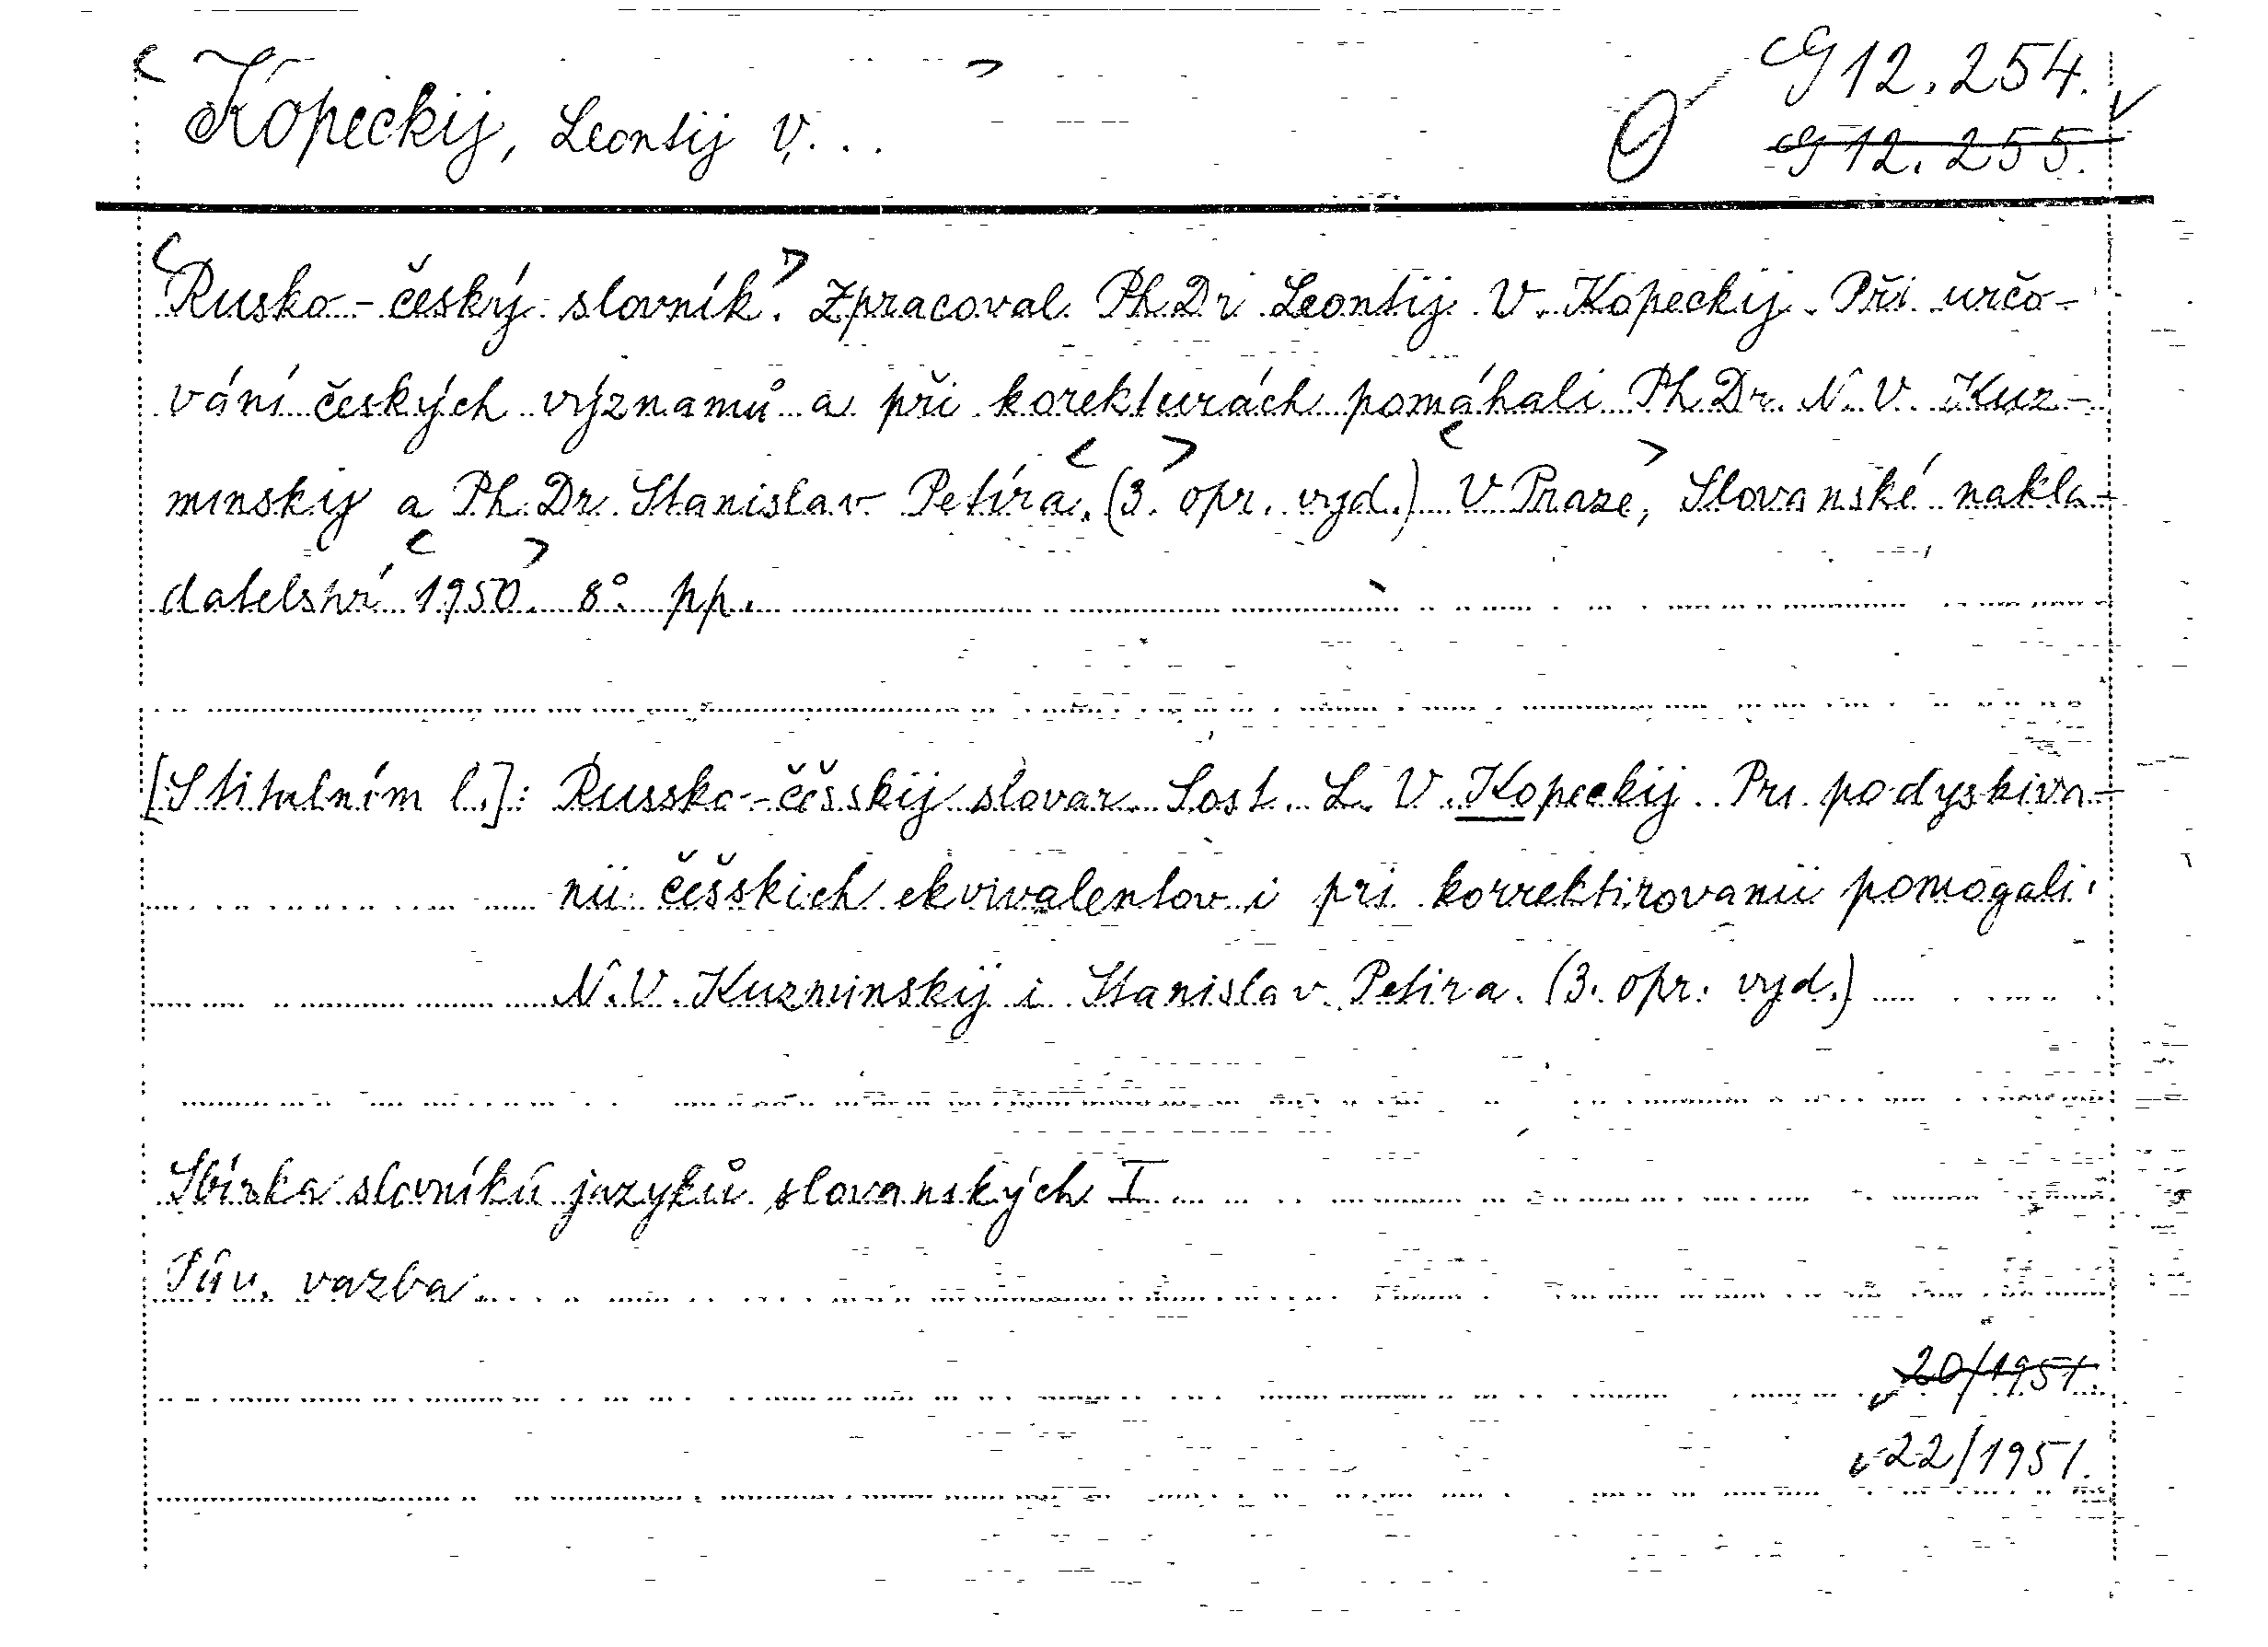 Kopeckij, Leontij V. ...
G 12.254.
G 12.255.
Rusko-český slovník. Zpracoval PhDr Leontij V. Kopeckij. Při určo-
vání českých významů a při korekturách pomáhali PhDr. N. V. Kuz-
minskij a PhDr. Stanislav Petíra. (3. opr. vyd.) V Praze, Slovanské nakla-
datelství 1950. 8°. pp.
[S titulním l.]: Russko-češskij slovar. Sost. L. V. Kopeckij. Pri podyskiva-
nii češskich ekvivalentov i pri korrektirovanii pomogali
N. V. Kuzminskij i Stanislav Petira. (3. opr. vyd.)
Sbírka slovníků jazyků slovanských I
Pův. vazba
20/1951.
22/1951.